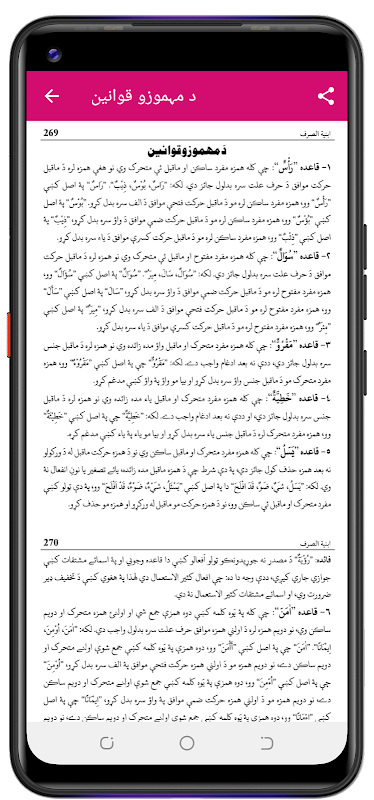 د مهموزو قوانين
269
ابنية الصرف
دَ مهموزو قوانين
١- قاعده ”رَأْسٌ“: چې کله همزه مفرد ساکن او ماقبل ئې متحرک وي نو هغې همزه لره دَ ماقبل
حرکت موافق دَ حرف علت سره بدلول جائز دي. لکه: ”رَاسٌ، بُوْسٌ، ذِيْبٌ“. ”رَاسٌ“ پهٔ اصل کښې
”رَأْسٌ“ وو، همزه مفرد ساکن لره مو دَ ماقبل حرکت فتحې موافق دَ الف سره بدل کړو. ”بُوْسٌ“ پهٔ اصل
کښې ”بُؤْسٌ“ وو، همزه مفرد ساکن لره مو دَ ماقبل حرکت ضمې موافق دَ واؤ سره بدل کړو، ”ذِيْبٌ“ پهٔ
اصل کښې ”ذِئْبٌ“ وو، همزه مفرد ساکن لره مو دَ ماقبل حرکت کسرې موافق دَ ياء سره بدل کړو.
٢- قاعده ”سُوَالٌ“: چې کله همزه مفرد مفتوح او ماقبل ئې متحرک وي نو همزه لره دَ ماقبل حرکت
موافق دَ حرف علت سره بدلول جائز دي. لکه: ”سُوَالٌ، سَالَ، مِيَرٌ“. ”سُوَالٌ“ پهٔ اصل کښې ”سُؤَالٌ“ وو،
همزه مفرد مفتوح لره مو دَ ماقبل حرکت ضمې موافق دَ واؤ سره بدل کړو، ”سَالَ“ پهٔ اصل کښې ”سَأَلَ“
وو، همزه مفرد مفتوح لره مو دَ ماقبل حرکت فتحې موافق دَ الف سره بدل کړو، ”مِيَرٌ“ پهٔ اصل کښې
”مِئَرٌ“ وو، همزه مفرد مفتوح لره مو دَ ماقبل حرکت کسرې موافق دَ ياء سره بدل کړو.
٣- قاعده ”مَقْرُوٌّ“: چې کله همزه مفرد متحرک او ماقبل واؤ مده زائده وي نو همزه لره دَ ماقبل جنس
سره بدلول جائز دي، ددې نه بعد ادغام واجب دے. لکه: ”مَقْرُوٌّ“ چې پهٔ اصل کښې ”مَقْرُوْءٌ“ وو، همزه
مفرد متحرک لره مو دَ ماقبل جنس واؤ سره بدل کړو او بيا مو واؤ پهٔ واؤ کښې مدغم کړو.
٤- قاعده ”خَطِيَّةٌ“: چې کله همزه مفرد متحرک او ماقبل ياء مده زائده وي نو همزه لره دَ ماقبل
جنس سره بدلول جائز دي، او ددې نه بعد ادغام واجب دے. لکه: ”خَطِيَّةٌ“ چې پهٔ اصل کښې ”خَطِيْئَةٌ“
وو، همزه مفرد متحرک لره مو دَ ماقبل جنس ياء سره بدل کړو او بيا مو ياء پهٔ ياء کښې مدغم کړو.
٥- قاعده ”يَسَلُ“: چې کله همزه مفرد متحرک او ماقبل ساکن وي نو دَ همزه حرکت ماقبل له دَ ورکولو
نه بعد همزه حذف کول جائز دي، په دې شرط چې دَ همزه ماقبل مده زائده، يائے تصغير يا نونِ انفعال نهٔ
وي. لکه: ”يَسَلُ، شَيٌ، ضَوٌ، قَدَ افْلَحَ“ دا پهٔ اصل کښې ”يَسْئَلُ، شَيْءٌ، ضَوْءٌ، قَدْ اَفْلَحَ“ وو، پهٔ دې ټولو کښې
مفرد متحرک او ماقبل ئې ساکن وو، نو دَ همزه حرکت مو ماقبل له ورکړو او همزه مو حذف کړو.
270
ابنية الصرف
فائده: ”رُؤْيَةٌ“ دَ مصدر نه جوړيدونکو ټولو أفعالو کښې دا قاعده وجوبي او پهٔ اسمائے مشتقات کښې
جوازي جاري کيږي، ددې وجه دا ده: چې افعال کثير الاستعمال دي لهٰذا پهٔ هغوي کښې دَ تخفيف ډير
ضرورت وي، او اسمائے مشتقات کثير الاستعمال نهٔ دي.
٦- قاعده ”اٰمَنَ“: چې کله پهٔ يَوه کلمه کښې دوه همزې جمع شي او اولنۍ همزه متحرک او دويم
ساکن وي، نو دويم همزه لره دَ اولنې همزې موافق حرف علت سره بدلول واجب دي. لکه: ”اٰمَنَ، اُوْمِنَ،
اِيْمَانًا“. ”اٰمَنَ“ چې پهٔ اصل کښې ”أَأْمَنَ“ وو، دوه همزې پهٔ يَوه کلمه کښې جمع شوې اولنے متحرک او
دويم ساکن دے، نو دويم همزه مو دَ اولنې همزې حرکت فتحې موافق پهٔ الف سره بدل کړو، ”اُوْمِنَ“
چې پهٔ اصل کښې ”أُؤْمِنَ“ وو، دوه همزې پهٔ يَوه کلمه کښې جمع شوې اولنے متحرک او دويم ساکن
دے، نو دويم همزه مو دَ اولنې همزې حرکت ضمې موافق پهٔ واؤ سره بدل کړو، ”اِيْمَانًا“ چې پهٔ اصل
کښې ”اِئْمَانًا“ وو، دوه همزې پهٔ يَوه کلمه کښې جمع شوې اولنے متحرک او دويم ساکن دے، نو دويم